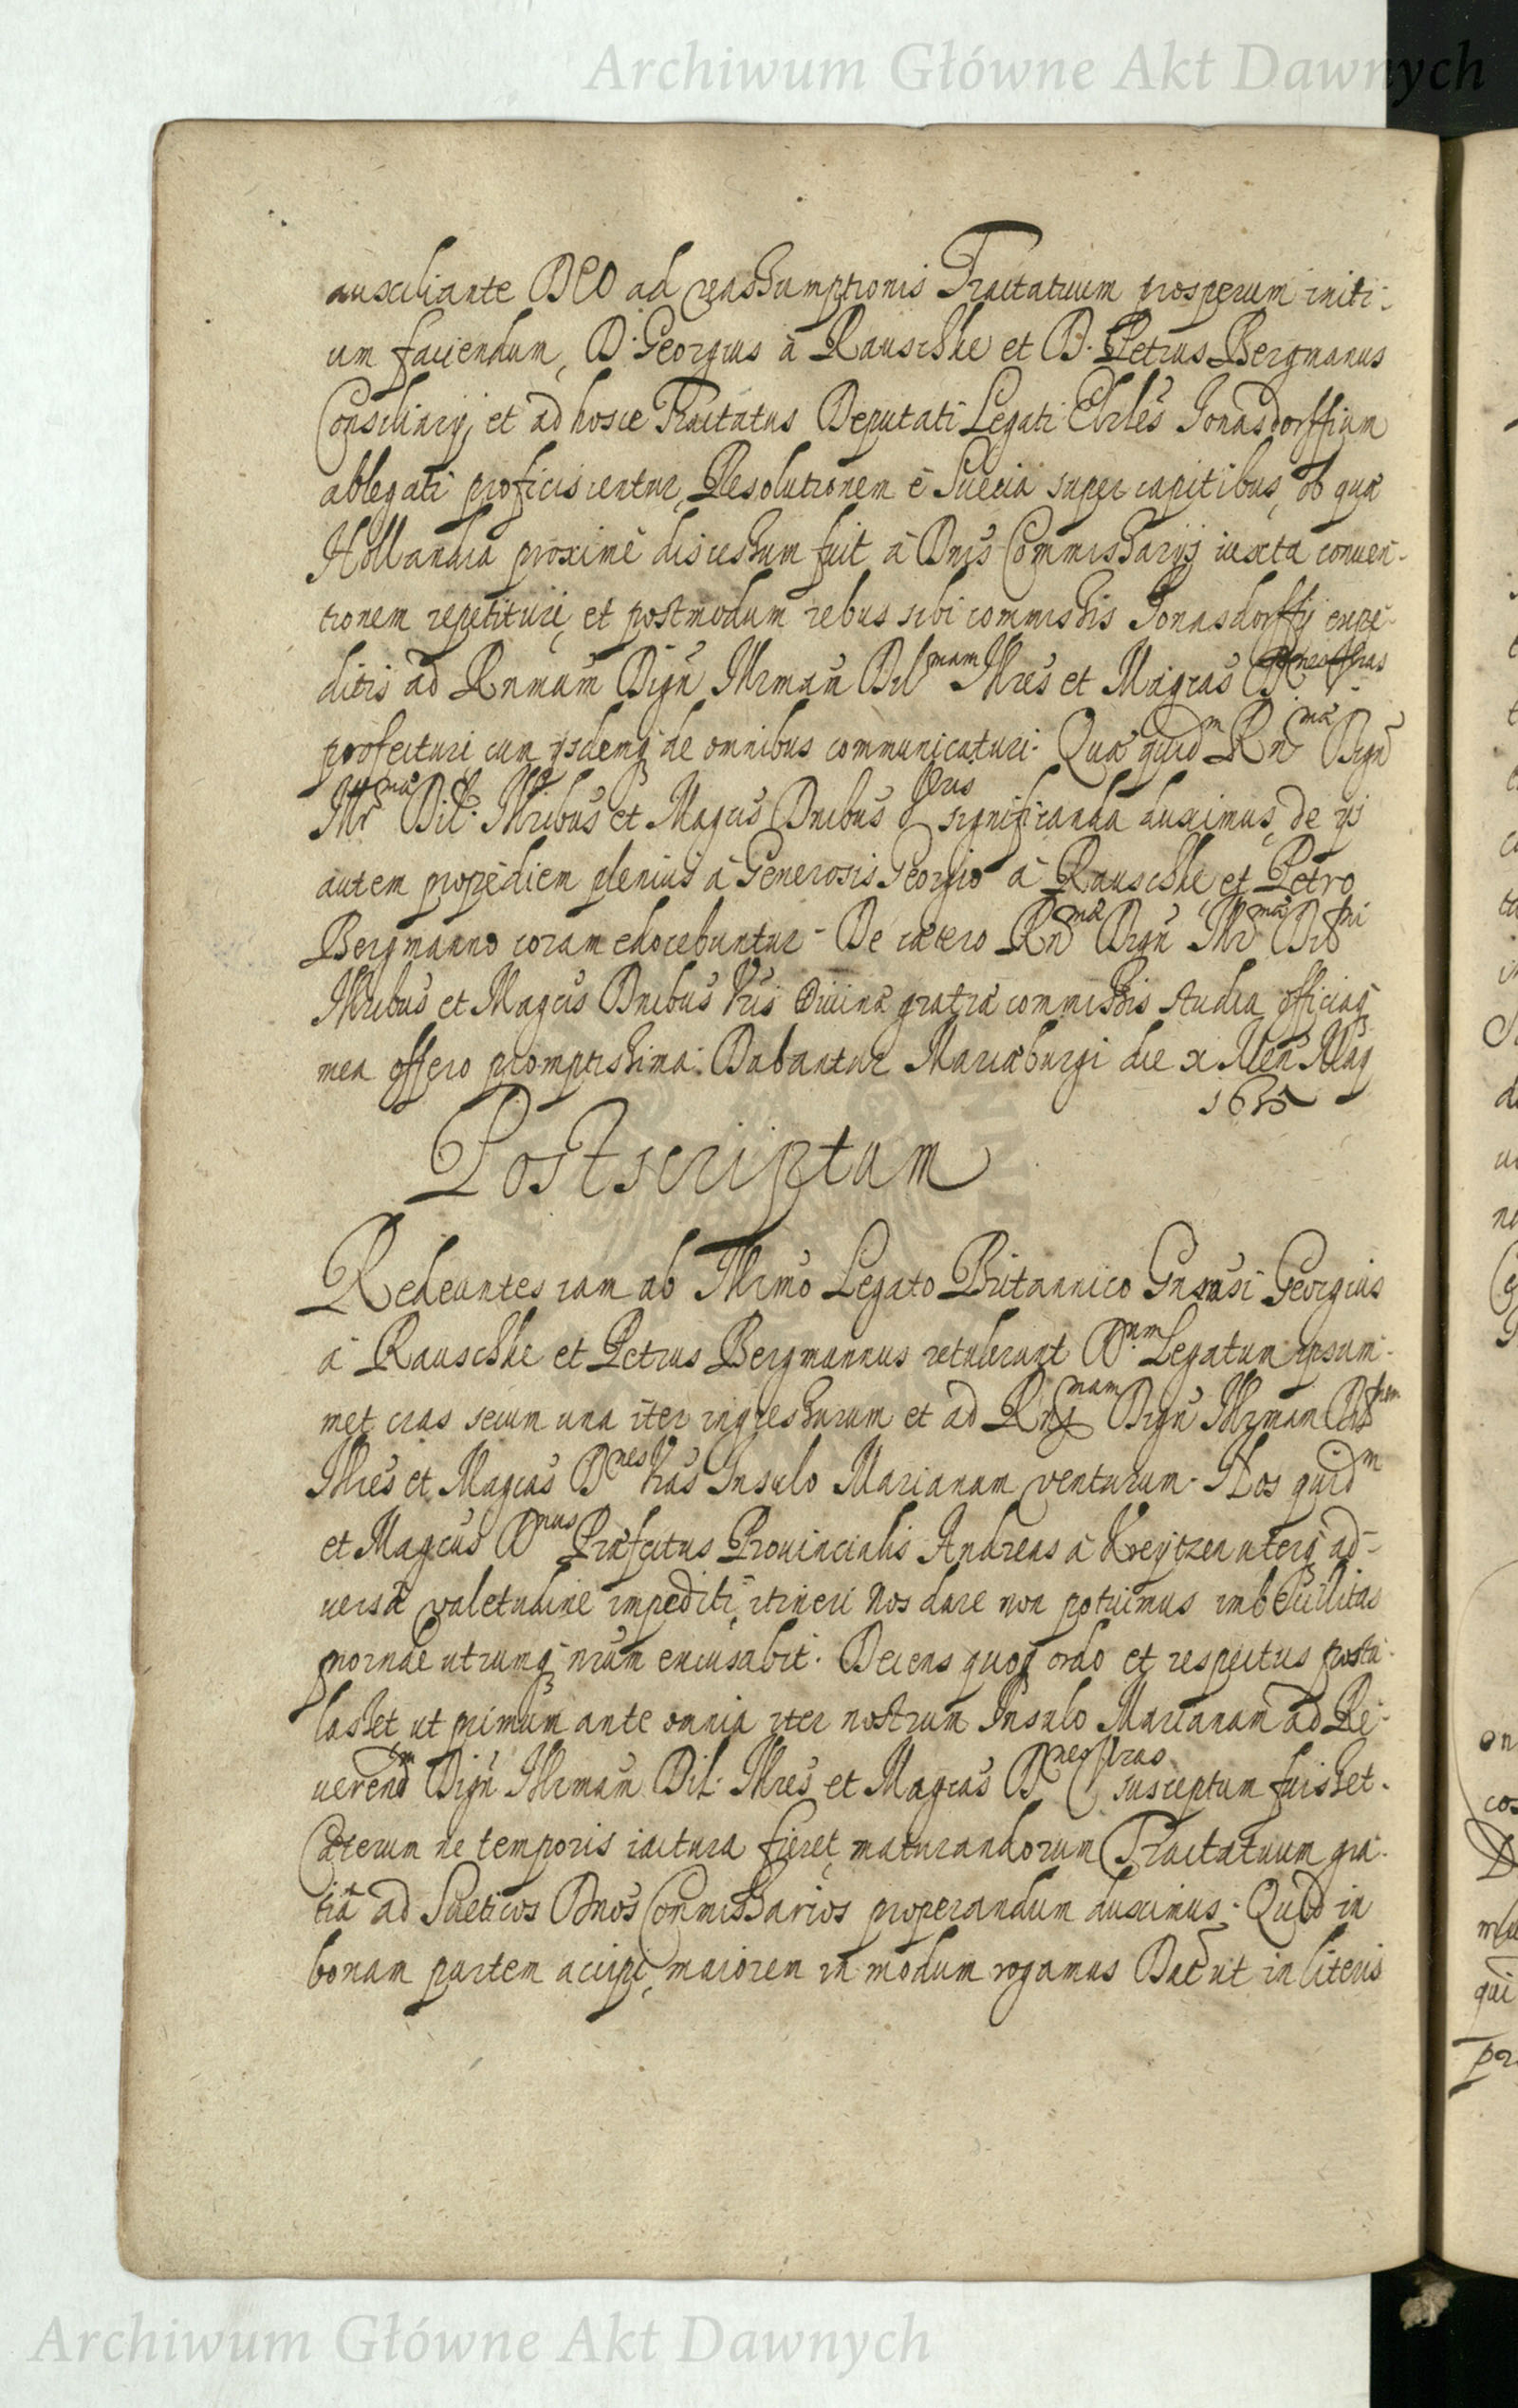 Archiwum Główne Akt Dawnych
auxiliante DEO ad reashumptionis Tractatuum prosperum initi-
um faciendum, D. Georgius à Rauschke et D. Petrus Bergmanus
Consiliarij et ad hosce Tractatus Deputati Legati Elrles Jonasdorffium
ablegati proficiscentur, Resolutionem è Suecia super capitibus, ob quæ
Hollandia proximè discesshum fuit à Dnis Commissharijs iuxta conven-
tionem repetituri, et postmodum rebus sibi commisshis Jonasdorffij expe-
ditis ad Rnmam Dign Illrmam Dil mam Illres et Magcas D.
profecturi cum ijsdemq de omnibus communicaturi. Quæ quid m Rn mæ Dign
Illr mæ Dil. Illribus et Magcis Dnibus Vris significanda duximus, de ijs
autem propediem plenius à Generosis Georgio à Rauschke et Petro
Bergmanno coram edocebuntur. De cætero Rn mæ Dign Illr mæ Dil
Illribus et Magcis Dnibus Vris Divinæ gratiæ commisshis studia officiaq
mea offero promptisshima. Dabantur Mariæburgi die x Men Maij
1635
Postscriptum
Redeuntes iam ab Illrmo Legato Britannico Gnrosi Georgius
à Rauschke et Petrus Bergmannus retulerunt D num Legatum ipsum-
met cras secum una iter ingresshurum et ad Rn mam Dign Illrmam Dil
Illres et Magcas D nes Vras Insulo Marianam venturum. Nos quid m
et Magcus D nus Præfectus Provincialis Andreas à Kreytzen uterq ad-
versâ valetudine impediti, itineri nos dare non potuimus imbecillitas
utrumq nrum excusabit. Decens quoq ordo et respectus postu-
lasshet ut primum ante omnia iter nostrum Insulo Marianam ad Re-
verend m Dign Illrmam Dil. Illres et Magcas D nes Vras susceptum fuisshet.
Cæterum ne temporis iactura fieret, maturandorum Tractatuum gra-
tiâ ad Sueticos Dnos Commissharios properandum duximus. Quod in
bonam partem accipi, maiorem in modum rogamus Dat ut in literis
Archiwum Główne Akt Dawnych